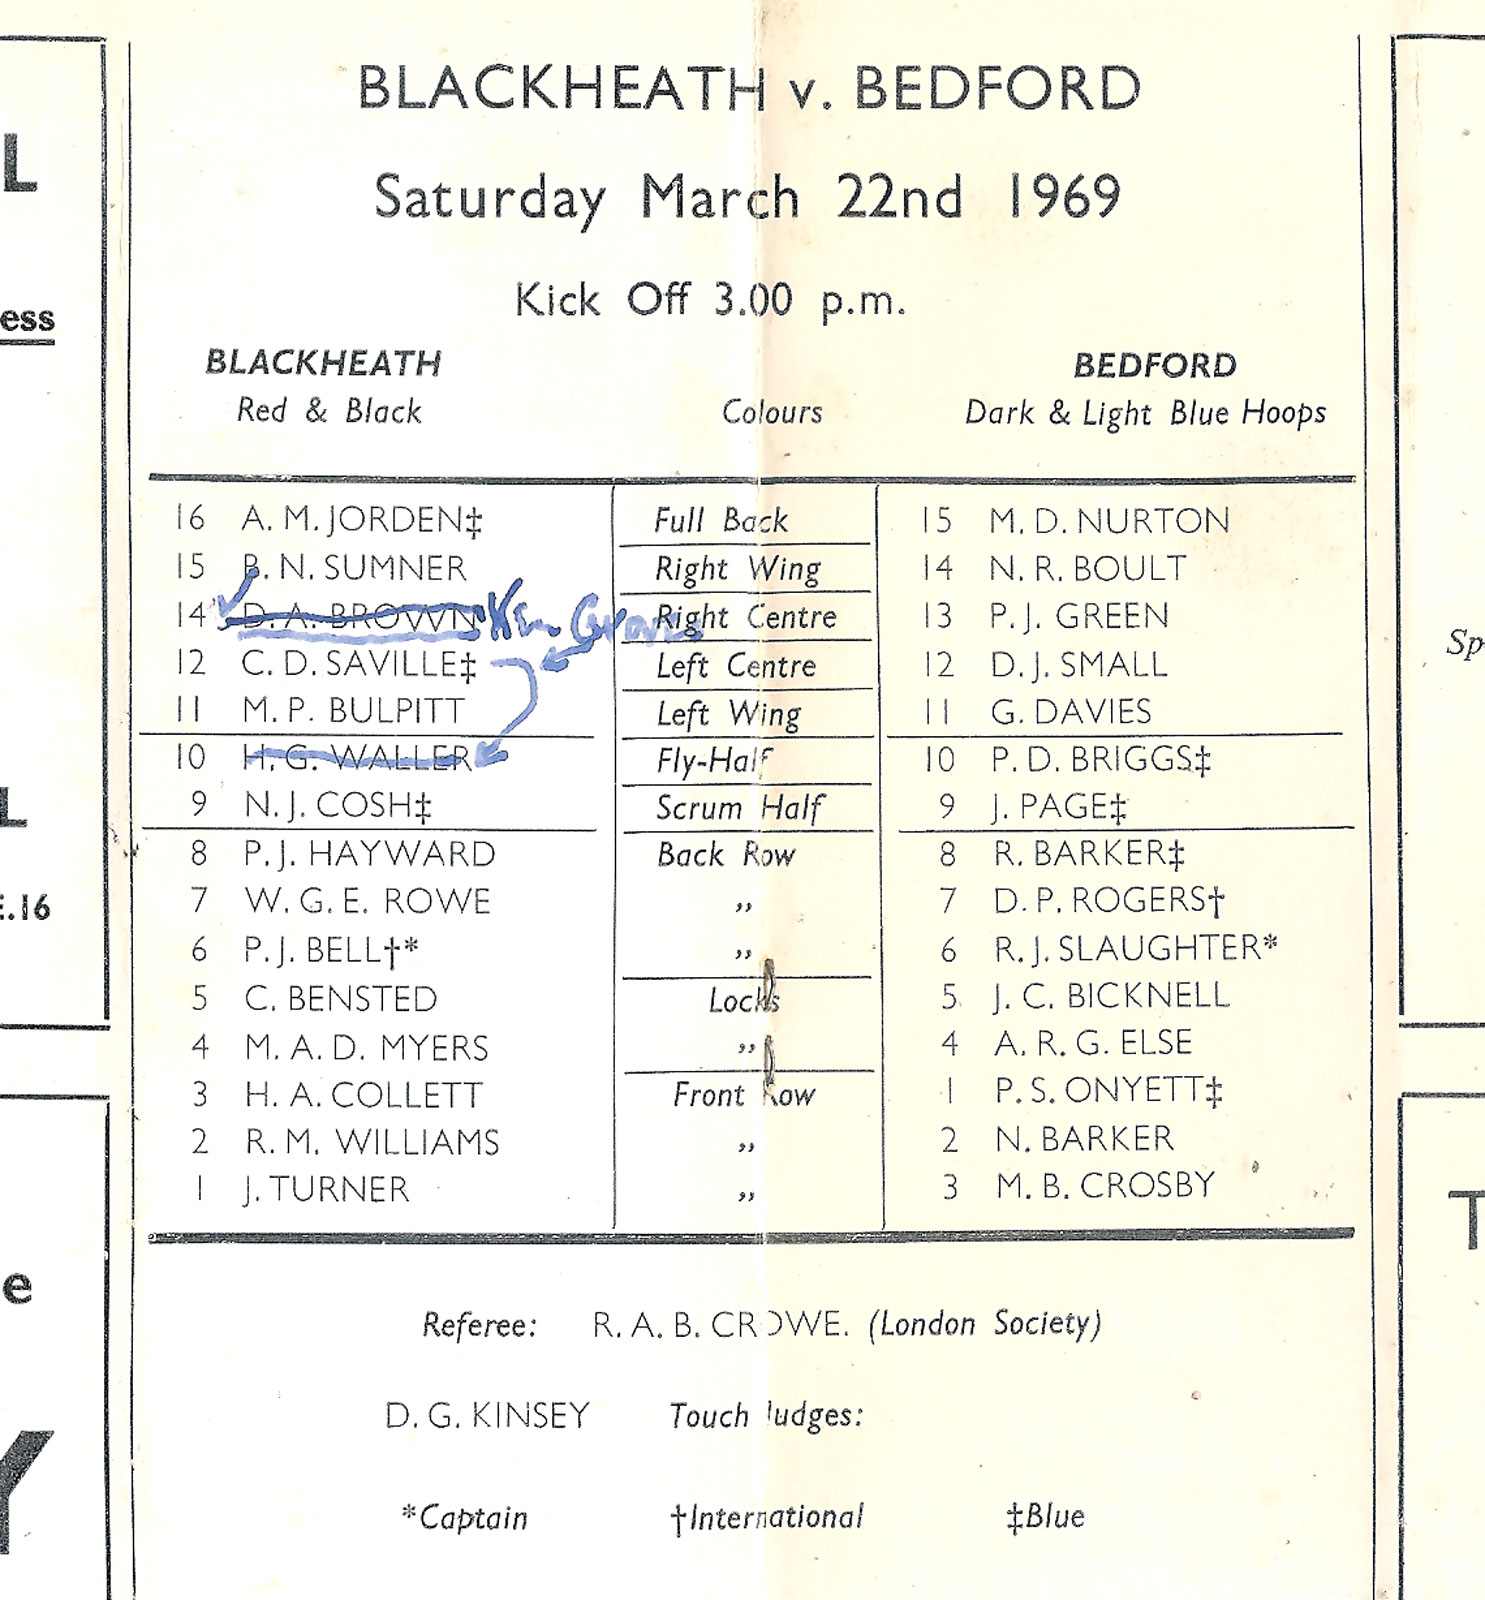 BLACKHEATH v. BEDFORD
Saturday March 22nd 1969
Kick Off 3.00 p.m.
BLACKHEATH BEDFORD
Red & Black Colours Dark & Light Blue Hoops
16 A. M. JORDEN‡ Full Back 15 M. D. NURTON
15 B. N. SUMNER Right Wing 14 N. R. BOULT
14 D. A. BROWN Ken Right Centre 13 P. J. GREEN
12 C. D. SAVILLE‡ Left Centre 12 D. J. SMALL
11 M. P. BULPITT Left Wing 11 G. DAVIES
10 H. G. WALLER Fly-Half 10 P. D. BRIGGS‡
9 N. J. COSH‡ Scrum Half 9 J. PAGE‡
8 P. J. HAYWARD Back Row 8 R. BARKER‡
7 W. G. E. ROWE ,, 7 D. P. ROGERS†
6 P. J. BELL†* ,, 6 R. J. SLAUGHTER*
5 C. BENSTED Locks 5 J. C. BICKNELL
4 M. A. D. MYERS ,, 4 A. R. G. ELSE
3 H. A. COLLETT Front Row 1 P. S. ONYETT‡
2 R. M. WILLIAMS ,, 2 N. BARKER
1 J. TURNER ,, 3 M. B. CROSBY
Referee: R. A. B. CROWE. (London Society)
D. G. KINSEY Touch Judges:
*Captain †International ‡Blue
L
ess
L
E.16
e
Y
Sp
T